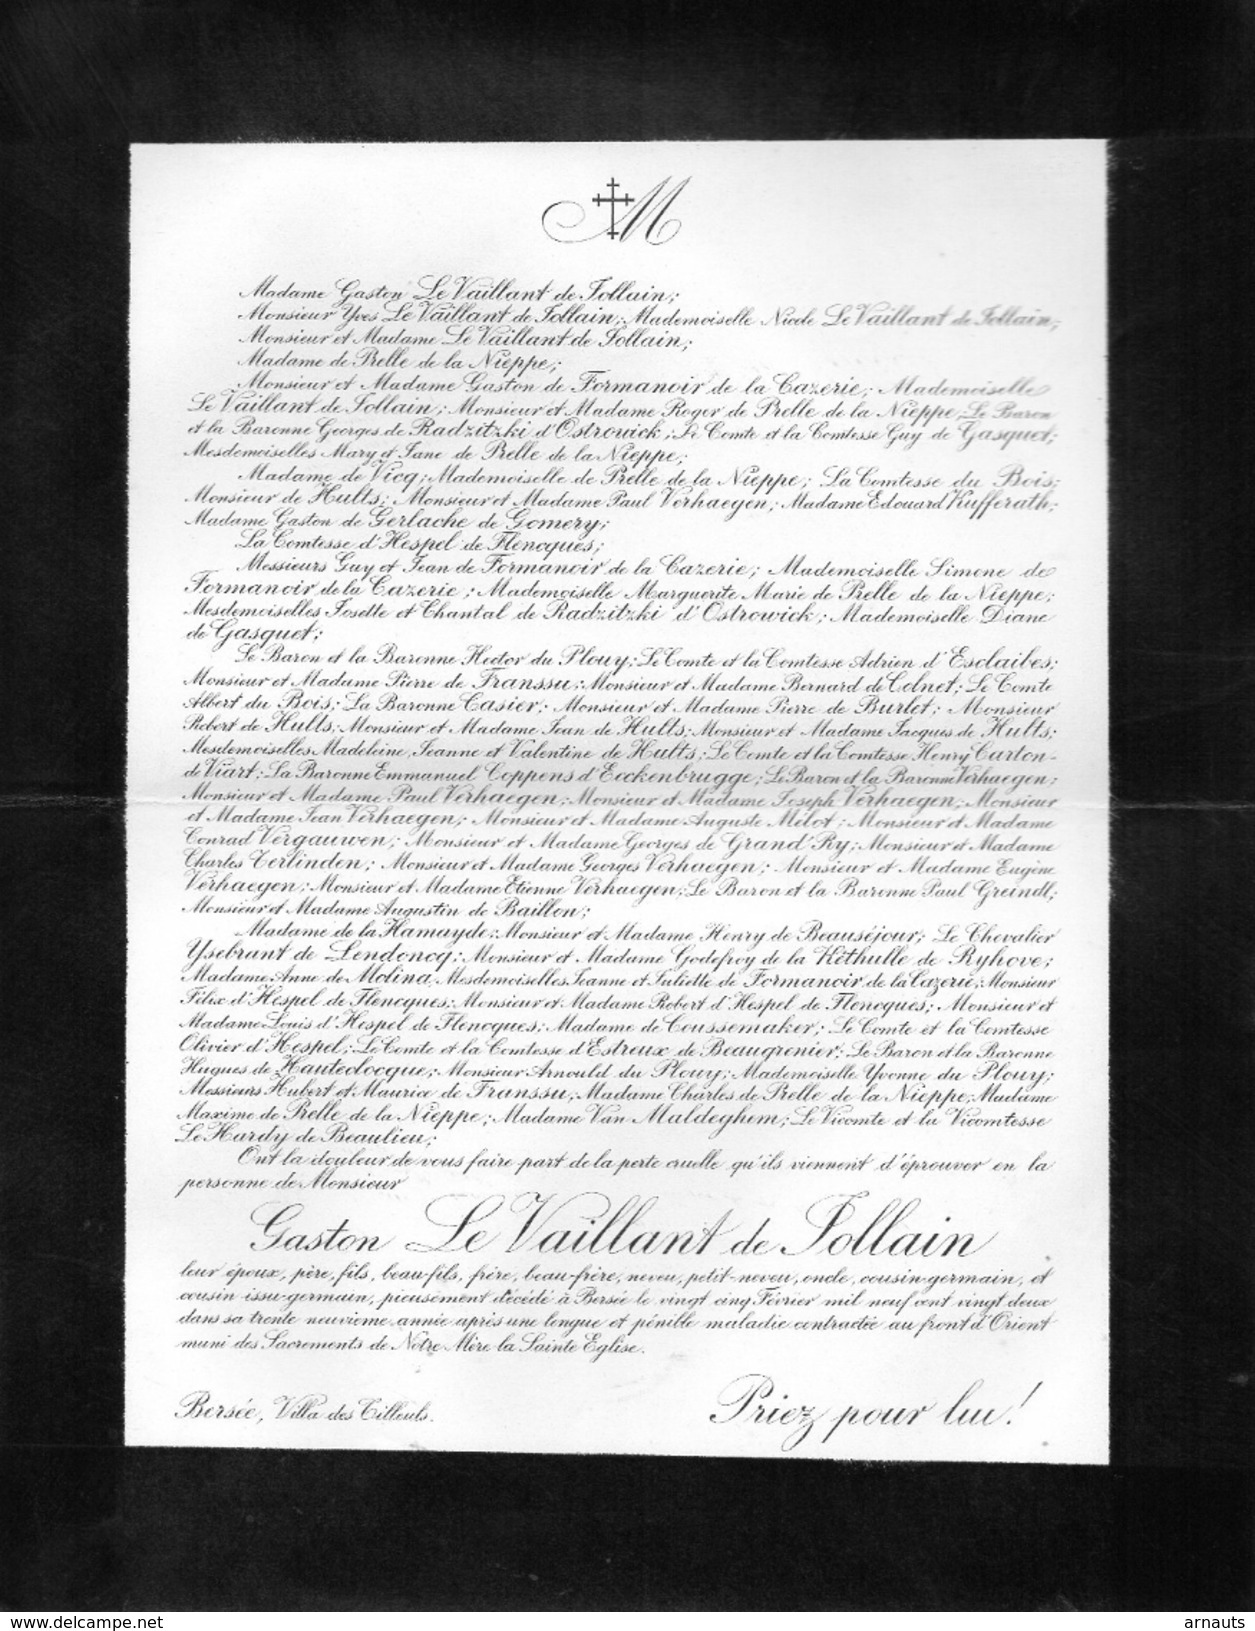 M
Madame Gaston Le Vaillant de Jollain;
Monsieur Yves Le Vaillant de Jollain; Mademoiselle Nicole Le Vaillant de Jollain;
Monsieur et Madame Le Vaillant de Jollain;
Madame de Prelle de la Nieppe;
Monsieur et Madame Gaston de Formanoir de la Cazerie; Mademoiselle
Le Vaillant de Jollain; Monsieur et Madame Roger de Prelle de la Nieppe; Le Baron
et la Baronne Georges de Radzitzki d'Ostrowick; Le Comte et la Comtesse Guy de Gasquet;
Mesdemoiselles Mary et Jane de Prelle de la Nieppe;
Madame de Vicq; Mademoiselle de Prelle de la Nieppe; La Comtesse du Bois;
Monsieur de Hults; Monsieur et Madame Paul Verhaegen; Madame Edouard Kufferath;
Madame Gaston de Gerlache de Gomery;
La Comtesse d'Hespel de Flencques;
Messieurs Guy et Jean de Formanoir de la Cazerie; Mademoiselle Simone de
Formanoir de la Cazerie; Mademoiselle Marguerite Marie de Prelle de la Nieppe;
Mesdemoiselles Josette et Chantal de Radzitzki d'Ostrowick; Mademoiselle Diane
de Gasquet;
Le Baron et la Baronne Hector du Plouy; Le Comte et la Comtesse Adrien d'Esclaibes;
Monsieur et Madame Pierre de Franssu; Monsieur et Madame Bernard de Colnet; Le Comte
Albert du Bois; La Baronne Casier; Monsieur et Madame Pierre de Burlet; Monsieur
Robert de Hults; Monsieur et Madame Jean de Hults; Monsieur et Madame Jacques de Hults;
Mesdemoiselles Madeleine, Jeanne et Valentine de Hults; Le Comte et la Comtesse Henry Carton-
de Wiart; La Baronne Emmanuel Coppens d'Eeckenbrugge; Le Baron et la Baronne Verhaegen;
Monsieur et Madame Paul Verhaegen; Monsieur et Madame Joseph Verhaegen; Monsieur
et Madame Jean Verhaegen; Monsieur et Madame Auguste Mélot; Monsieur et Madame
Conrad Vergauwen; Monsieur et Madame Georges de Grand'Ry; Monsieur et Madame
Charles Terlinden; Monsieur et Madame Georges Verhaegen; Monsieur et Madame Eugène
Verhaegen; Monsieur et Madame Etienne Verhaegen; Le Baron et la Baronne Paul Greindl;
Monsieur et Madame Augustin de Baillon;
Madame de la Hamayde; Monsieur et Madame Henry de Beauséjour; Le Chevalier
Ysebrant de Lendoncq; Monsieur et Madame Godefroy de la Kéthulle de Ryhove;
Madame Anne de Molina, Mesdemoiselles Jeanne et Juliette de Formanoir de la Cazerie; Monsieur
Félix d'Hespel de Flencques; Monsieur et Madame Robert d'Hespel de Flencques; Monsieur et
Madame Louis d'Hespel de Flencques; Madame de Coussemaker; Le Comte et la Comtesse
Olivier d'Hespel; Le Comte et la Comtesse d'Estreux de Beaugrenier; Le Baron et la Baronne
Hugues de Hauteclocque; Monsieur Arnould du Plouy; Mademoiselle Yvonne du Plouy;
Messieurs Hubert et Maurice de Franssu; Madame Charles de Prelle de la Nieppe; Madame
Maxime de Prelle de la Nieppe; Madame Van Maldeghem; Le Vicomte et la Vicomtesse
Le Hardy de Beaulieu;
Ont la douleur de vous faire part de la perte cruelle qu'ils viennent d'éprouver en la
personne de Monsieur
Gaston Le Vaillant de Jollain
leur époux, père, fils, beau-fils, frère, beau-frère, neveu, petit-neveu, oncle, cousin-germain, et
cousin issu-germain, pieusement décédé à Bersée le vingt cinq Février mil neuf cent vingt deux
dans sa trente neuvième année après une longue et pénible maladie contractée au front d'Orient
muni des Sacrements de Notre Mère la Sainte Eglise.
Bersée, Villa des Tilleuls.
Priez pour lui!
www.delcampe.net
arnauts